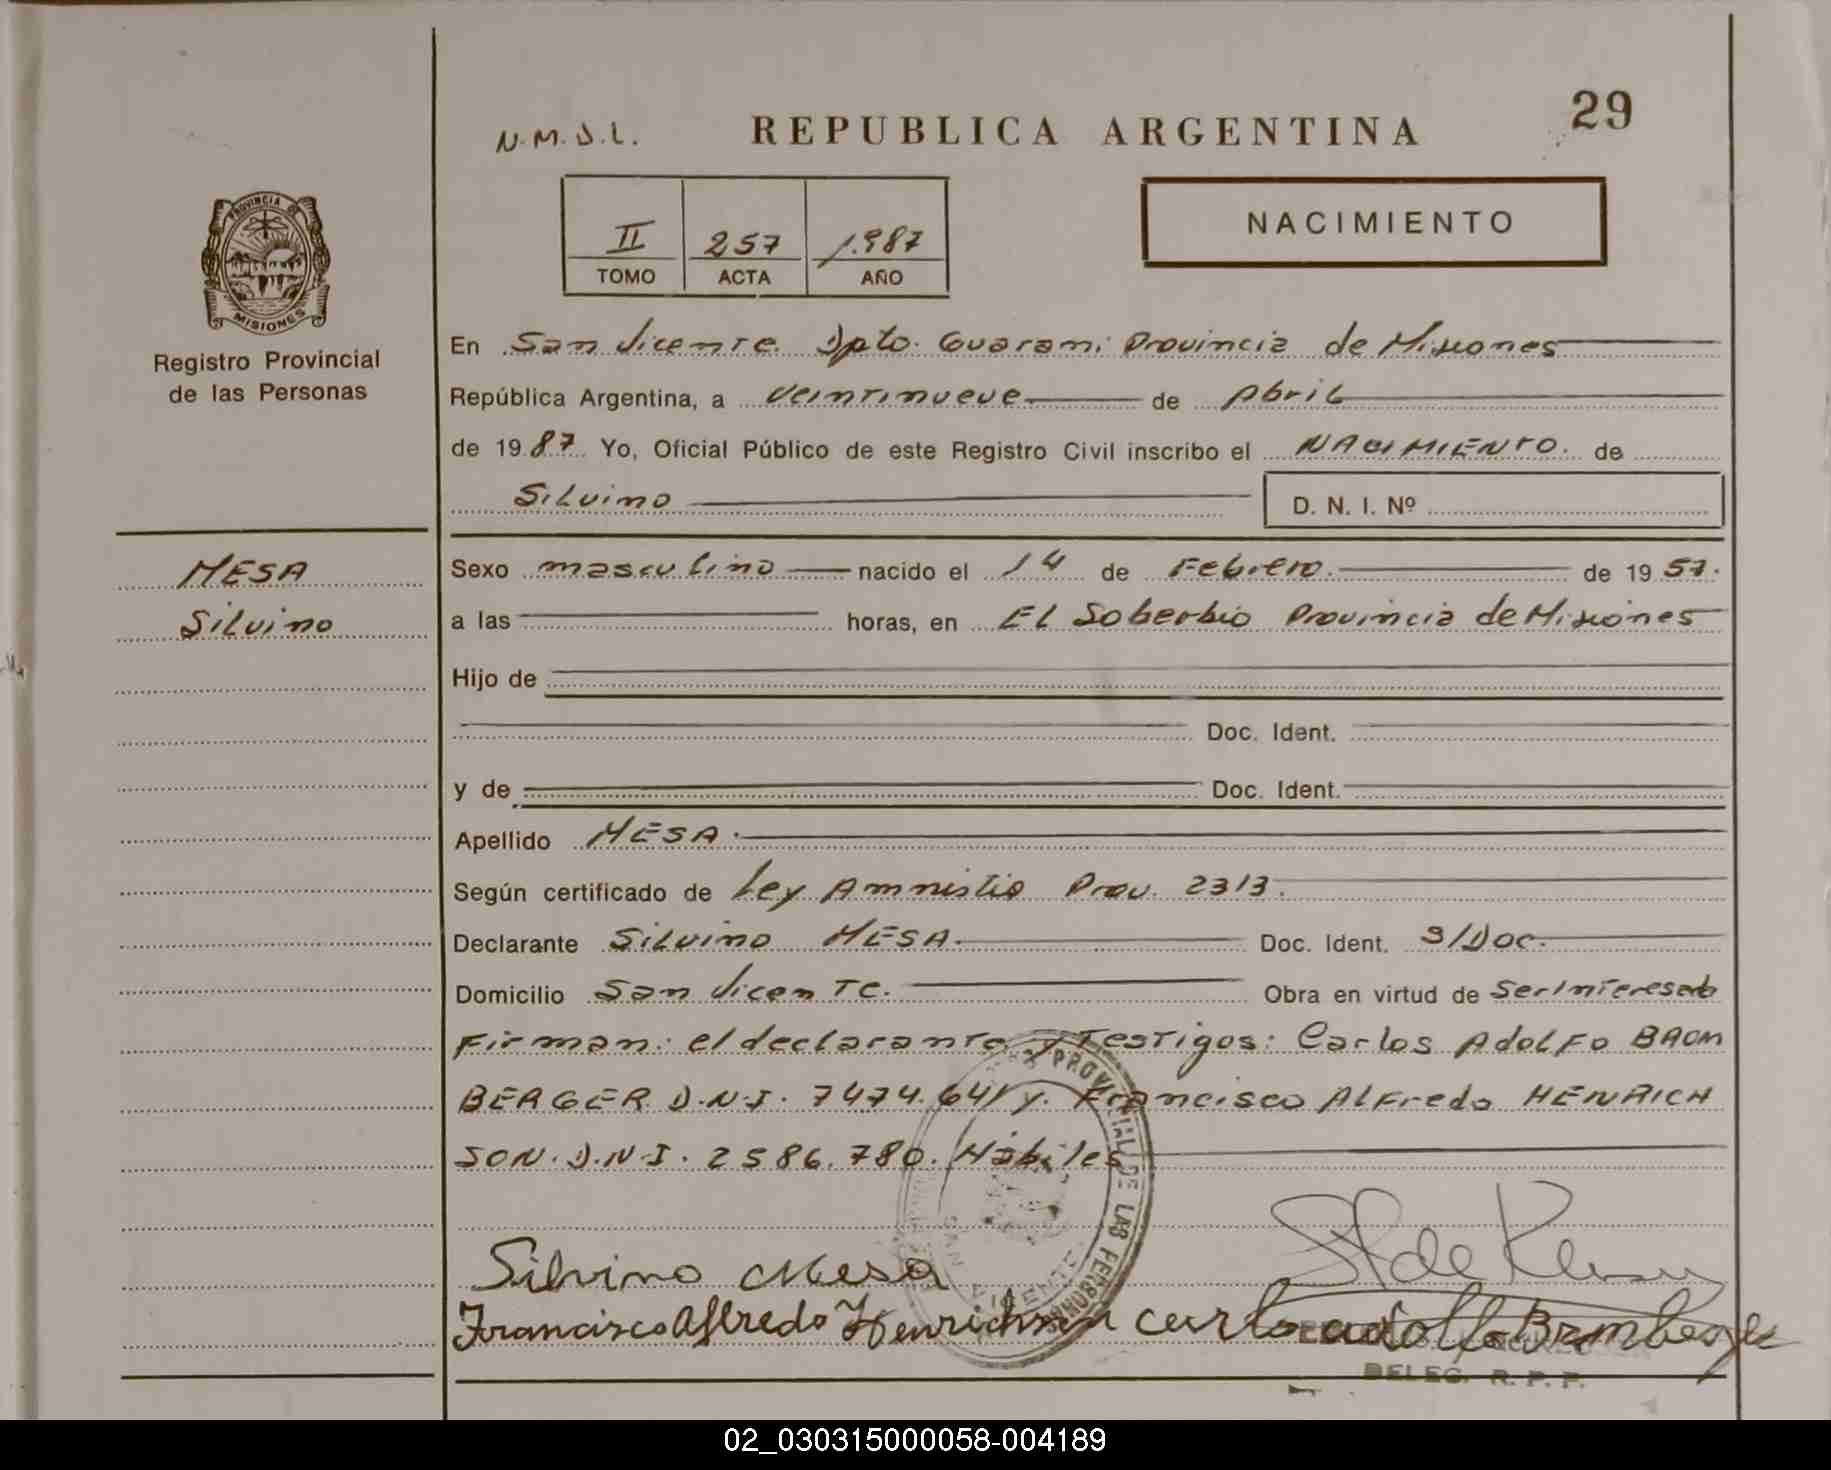 29
N.M.S.L. REPUBLICA ARGENTINA
NACIMIENTO
II 257 1.987
TOMO ACTA AÑO
PROVINCIA DE
MISIONES
Registro Provincial
de las Personas
MESA
Silvino
En San Vicente Dpto. Guarani Provincia de Misiones
República Argentina, a veintinueve de Abril
de 1987 Yo, Oficial Público de este Registro Civil inscribo el NACIMIENTO. de
Silvino D. N. I. Nº
Sexo masculino nacido el 14 de Febrero. de 1957.
a las horas, en El Soberbio Provincia de Misiones
Hijo de
Doc. Ident.
y de Doc. Ident.
Apellido MESA.
Según certificado de Ley Amnistia Prov. 2313.
Declarante Silvino MESA. Doc. Ident. S/Doc.
Domicilio San Vicente. Obra en virtud de ser Interesado
Firman: el declarante y Testigos: Carlos Adolfo BAOM
BERGER D.N.I. 7474.641 y. Francisco Alfredo HENRICH
SON. D.N.I. 2586.780. Hábiles
PROVINCIAL DE LAS PERSONAS
SAN VICENTE
Silvino Mesa
Francisco Alfredo Henrichson Carlos adolfo Bambeger
DELEG. R. P. P.
02_030315000058-004189